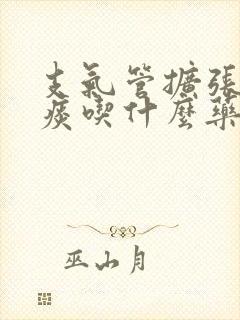 支氣管擴張
痰喫什麼藥
巫山月